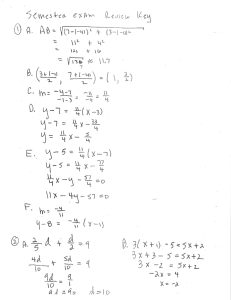 Semester exam Review Key
① A. AB = √(7-(-4))² + (3-(-1))²
= 11² + 4²
= 121 + 16
= √137 ≈ 11.7
B. (3+(-1)/2, 7+(-4)/2) = (1, 3/2)
C. m = -4-7/-1-3 = -11/-4 = 11/4
D. y-7 = 11/4(x-3)
y-7 = 11/4x - 33/4
y = 11/4x - 5/4
E. y-5 = 11/4(x-7)
y-5 = 11/4x - 77/4
11/4x - y - 57/4 = 0
11x - 4y - 57 = 0
F. m = -4/11
y-8 = -4/11(x-1)
② A. 2/5d + d/2 = 9
4d/10 + 5d/10 = 9
9d/10 = 9/1
9d = 90 d = 10
B. 3(x+1) - 5 = 5x+2
3x+3-5 = 5x+2
3x-2 = 5x+2
-2x = 4
x = -2